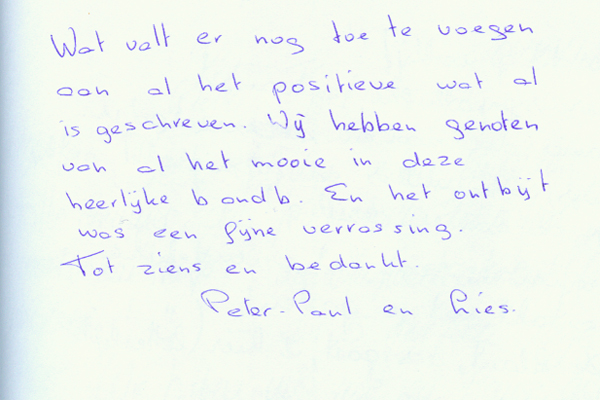 Wat valt er nog toe te voegen
aan al het positieve wat al
is geschreven. Wij hebben genoten
van al het mooie in deze
heerlijke b andb. En het ontbijt
was een fijne verrassing.
Tot ziens en bedankt.
Peter-Paul en Lies.